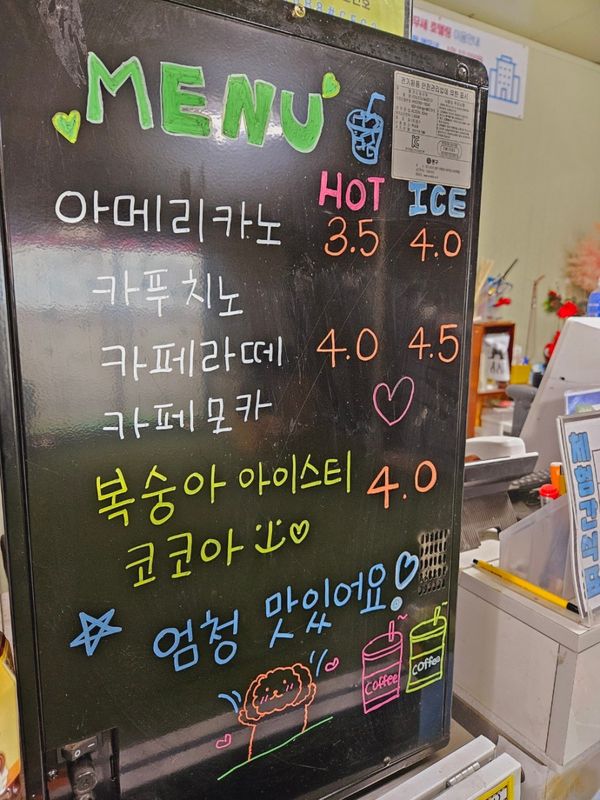 MENU
HOT ICE
아메리카노 3.5 4.0
카푸치노
카페라떼 4.0 4.5
카페모카
복숭아 아이스티 4.0
코코아
엄청 맛있어요!
coffee
coffee